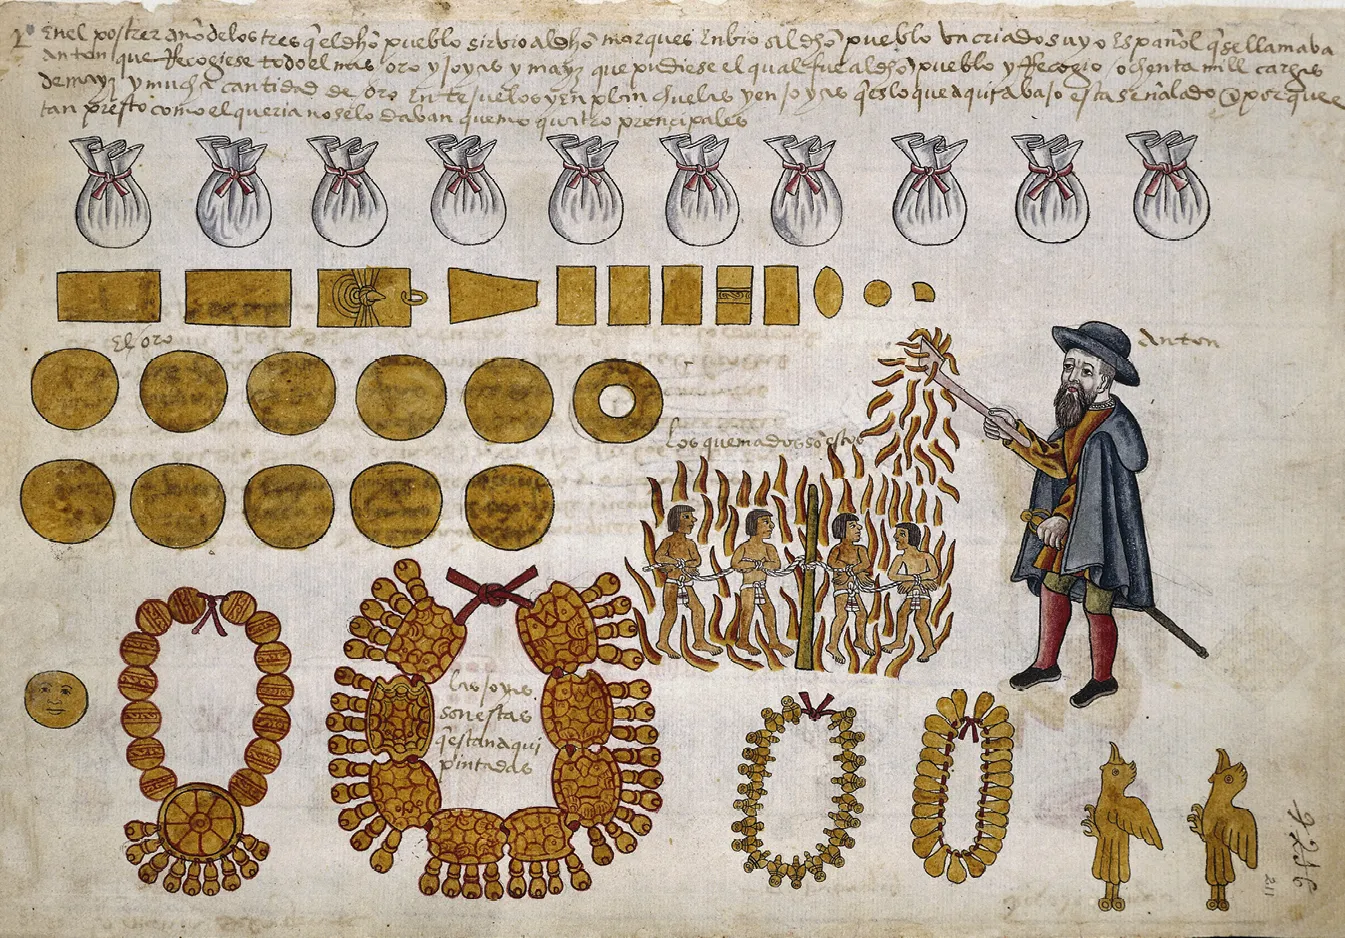 Enel postrer año delos tres q̃ el dh̃o pueblo sirvio al dh̃o marques Enbio al dh̃o pueblo un criado suyo Español q̃ se llamava
Anton que Recogiese todo el mas oro y joyas y mayz que pudiese el qual fue al dh̃o pueblo y Recogio ochenta mill cargas
de mayz y mucha cantidad de oro En tejuelos y en planchuelas y en joyas q̃ es lo que aqui abajo esta señalado y porque
tan presto como el queria no selo davan quemo quatro principales
El oro
Anton
los quemados so estos
las joyas
son estas
q̃ estan aqui
pintadas
211